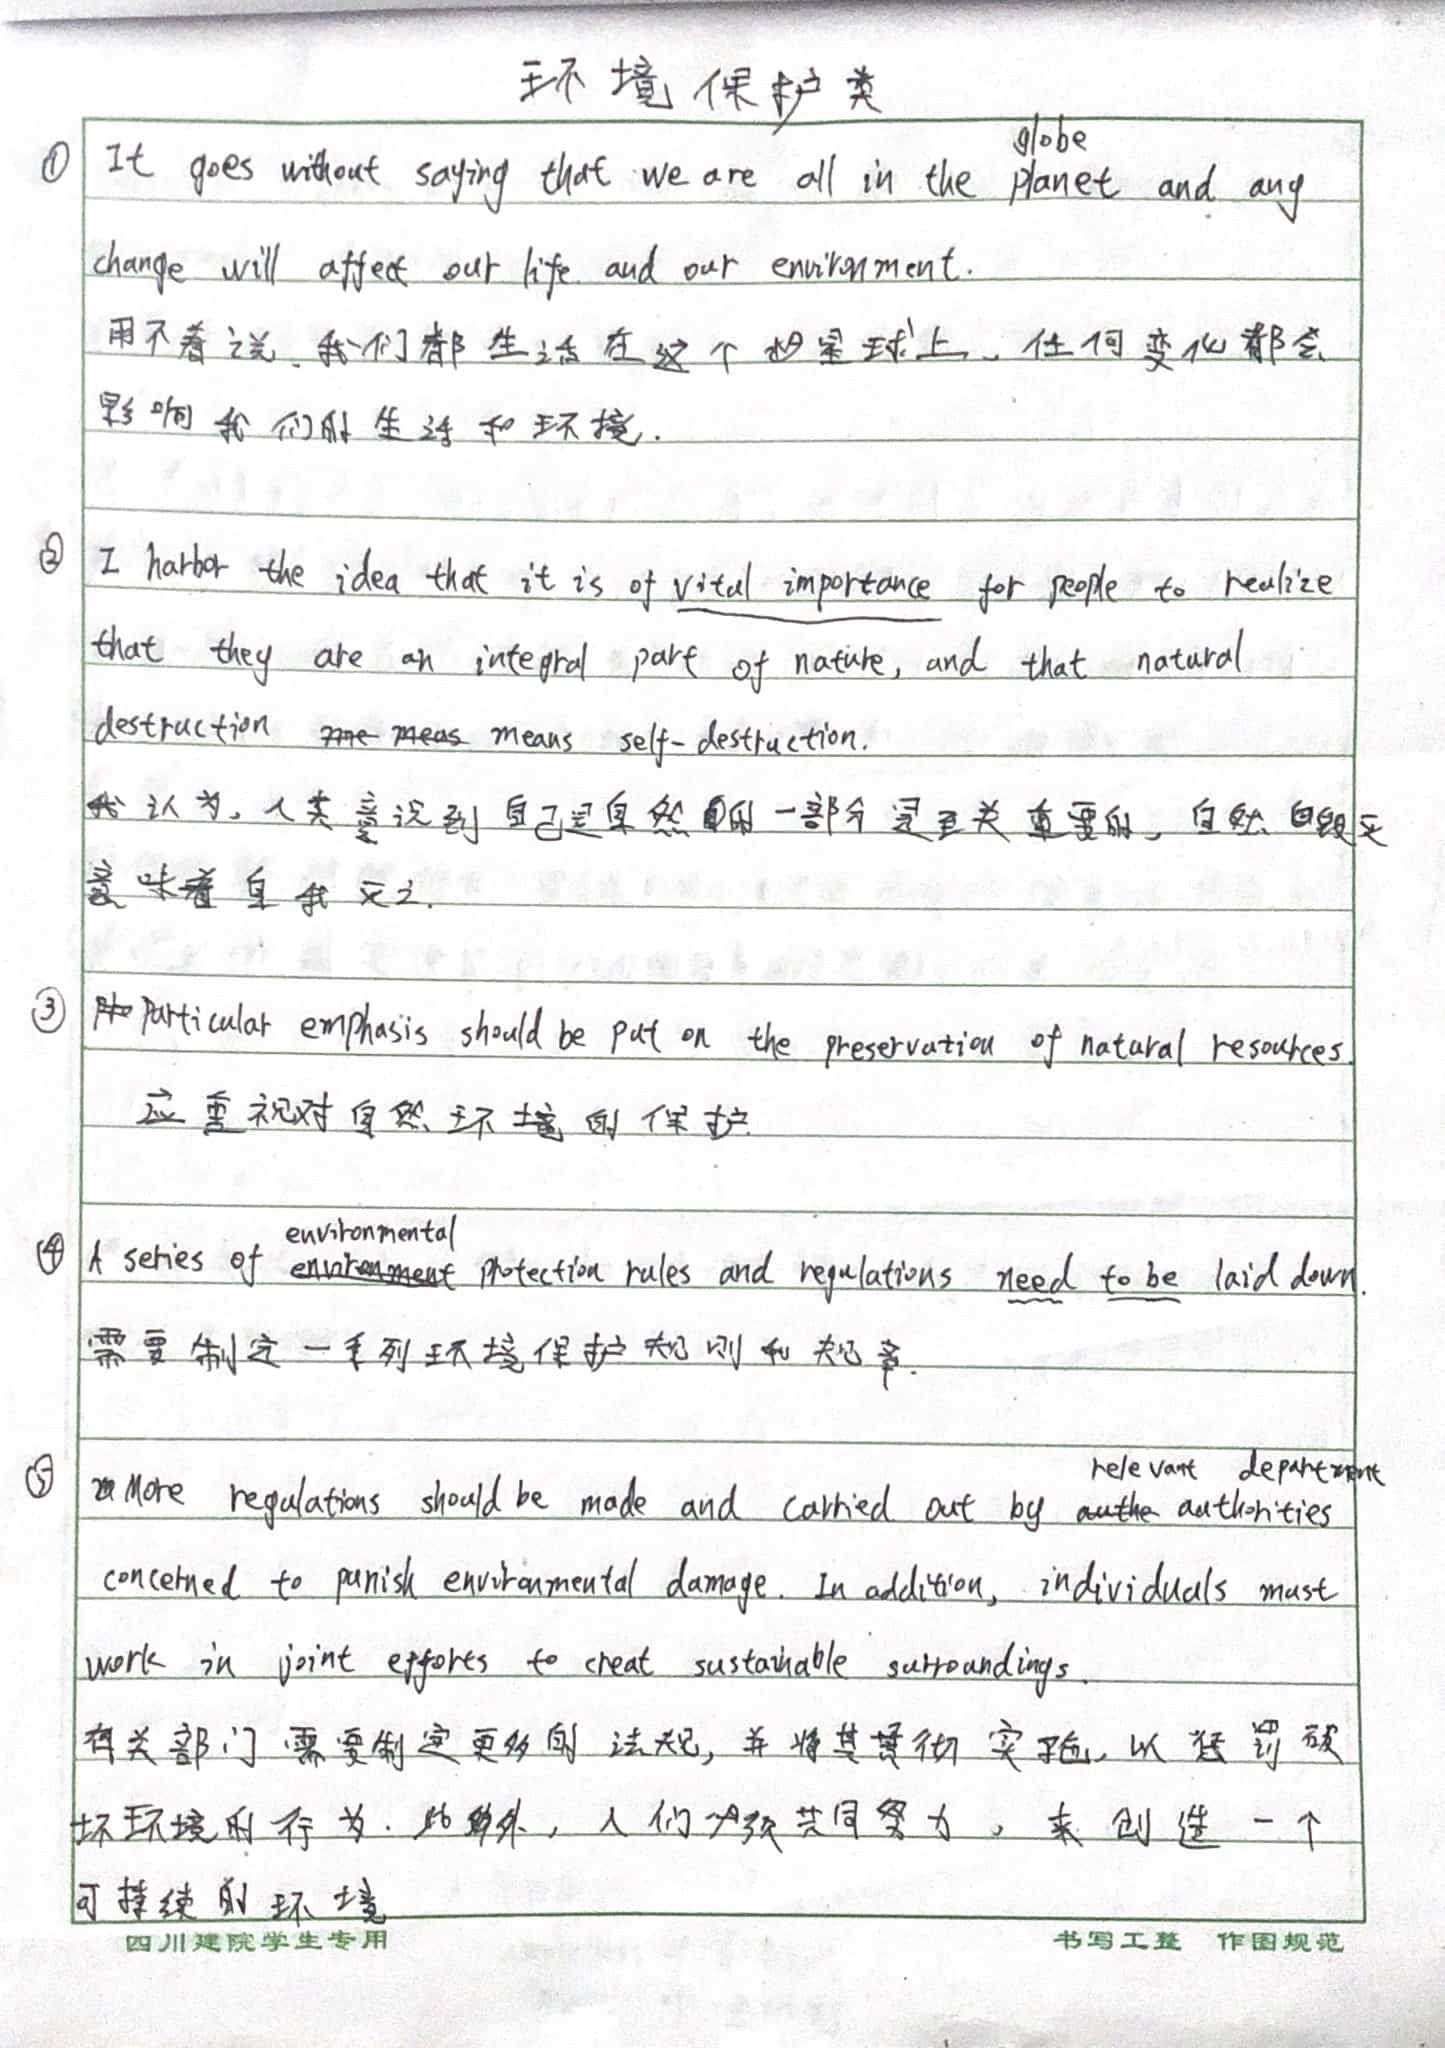 环境保护类
globe
① It goes without saying that we are all in the planet and any
change will affect our life and our environment.
用不着说、我们都生活在这个星球上、任何变化都会
影响我们的生活和环境.
② I harbor the idea that it is of vital importance for people to realize
that they are an integral part of nature, and that natural
destruction means self-destruction.
我认为、人类意识到自己是自然的一部分是至关重要的, 自然毁灭
意味着自我灭亡.
③ Particular emphasis should be put on the preservation of natural resources.
应重视对自然环境的保护
environmental
④ A series of environment protection rules and regulations need to be laid down.
需要制定一系列环境保护规则和规章.
relevant department
⑤ More regulations should be made and carried out by authe authorities
concerned to punish environmental damage. In addition, individuals must
work in joint efforts to creat sustainable surroundings.
有关部门需要制定更多的法规, 并将其贯彻实施、以惩罚破
坏环境的行为. 此外, 人们必须共同努力, 来创造一个
可持续的环境
四川建院学生专用 书写工整 作图规范